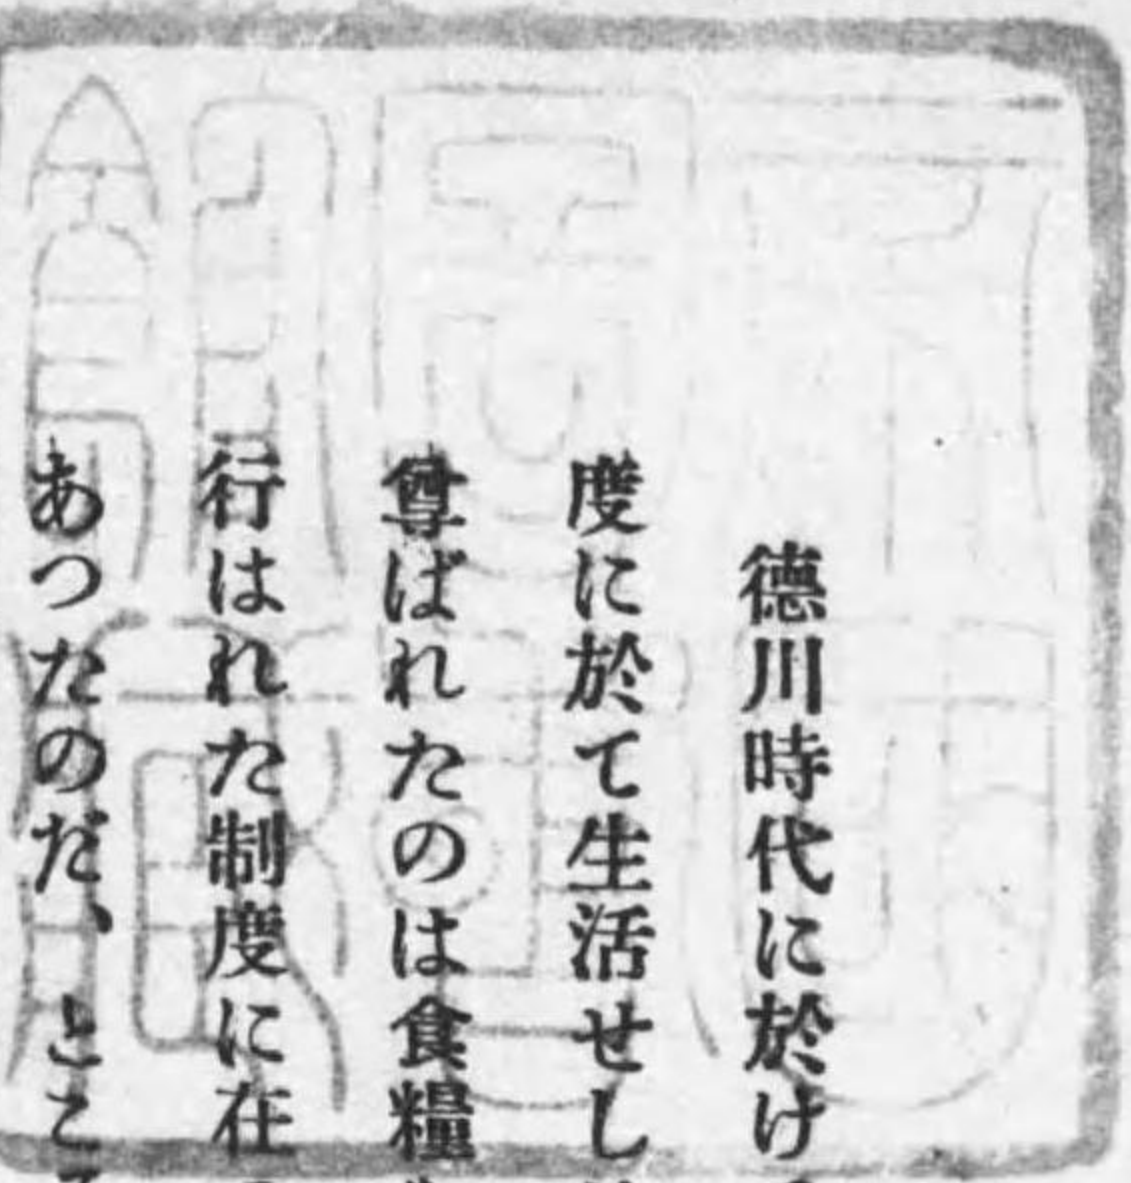 德川時代に於け
度に於て生活せし
尊ばれたのは食糧
行はれた制度に在
あつたのだ、とこ